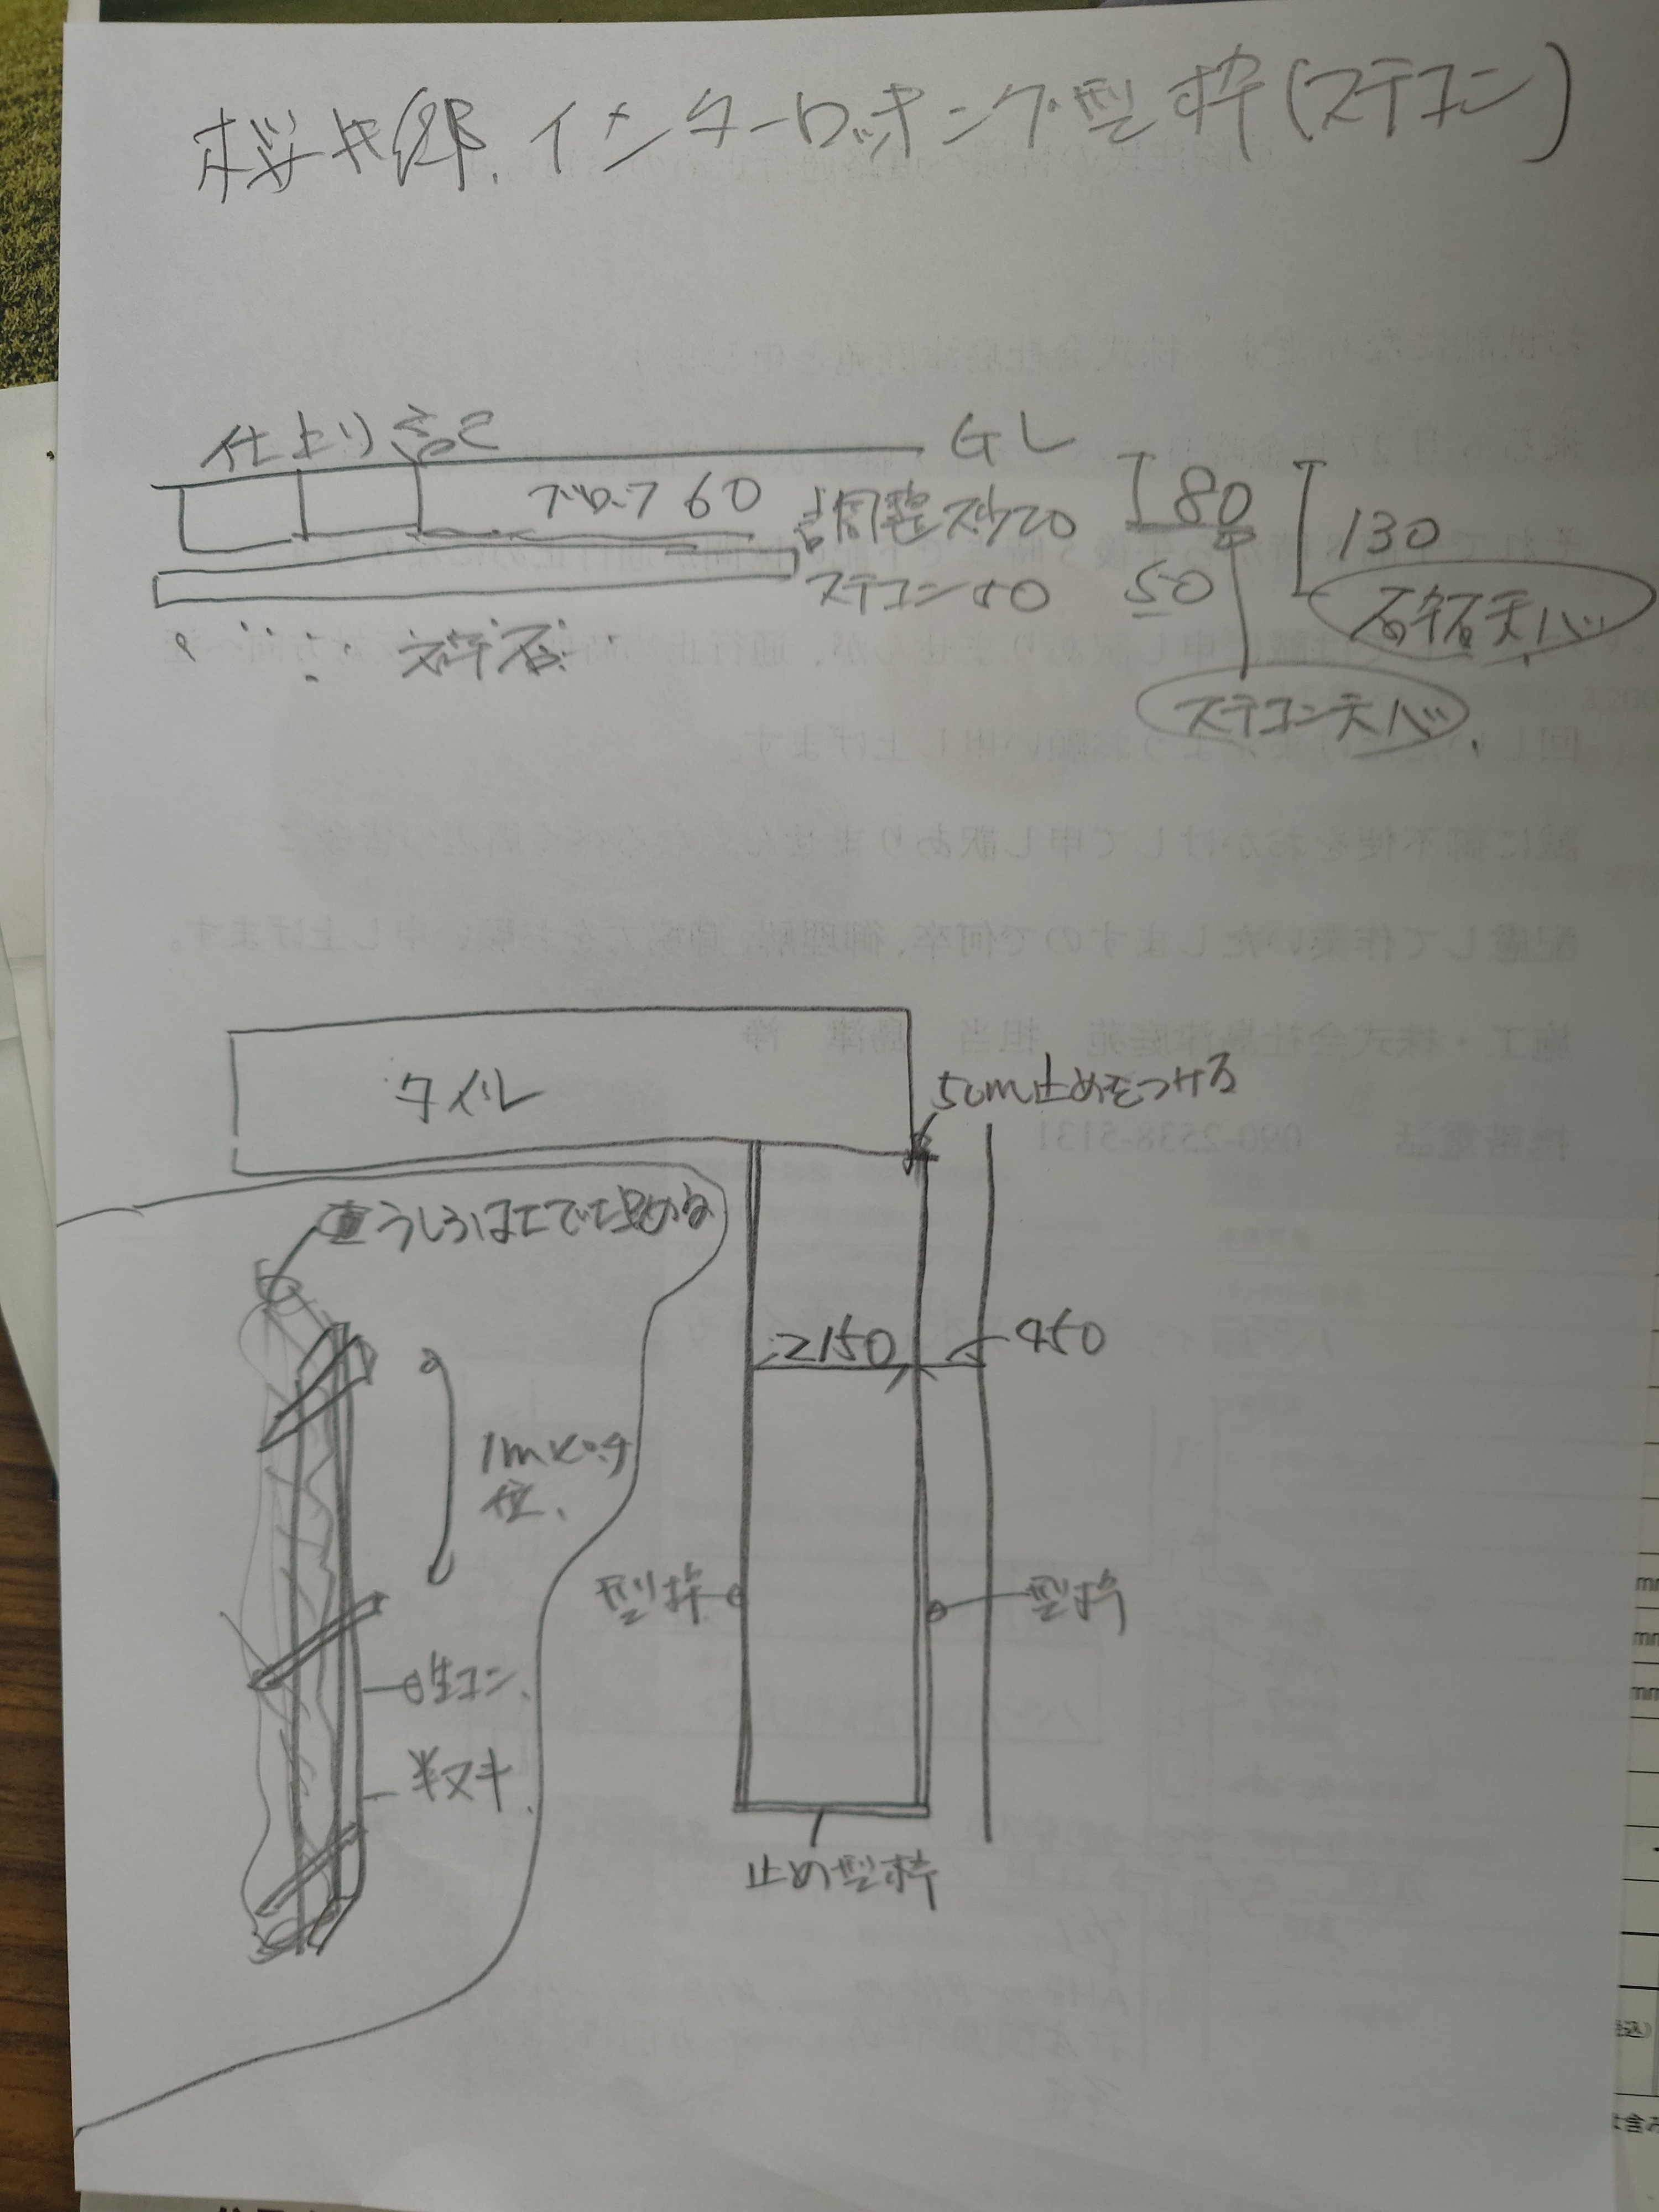 桜井郷.インターロッキング型枠(ステコン)
仕上り高さ GL
ブロック60
調整スナ20
ステコン50
砕石
80
50
130
砕石天バ
ステコン天バ.
タイル
5cm止めをつける
うしろは土で止める
2150
450
1mピッチ
位.
型枠
型枠
生コン.
半ヌキ.
止め型枠